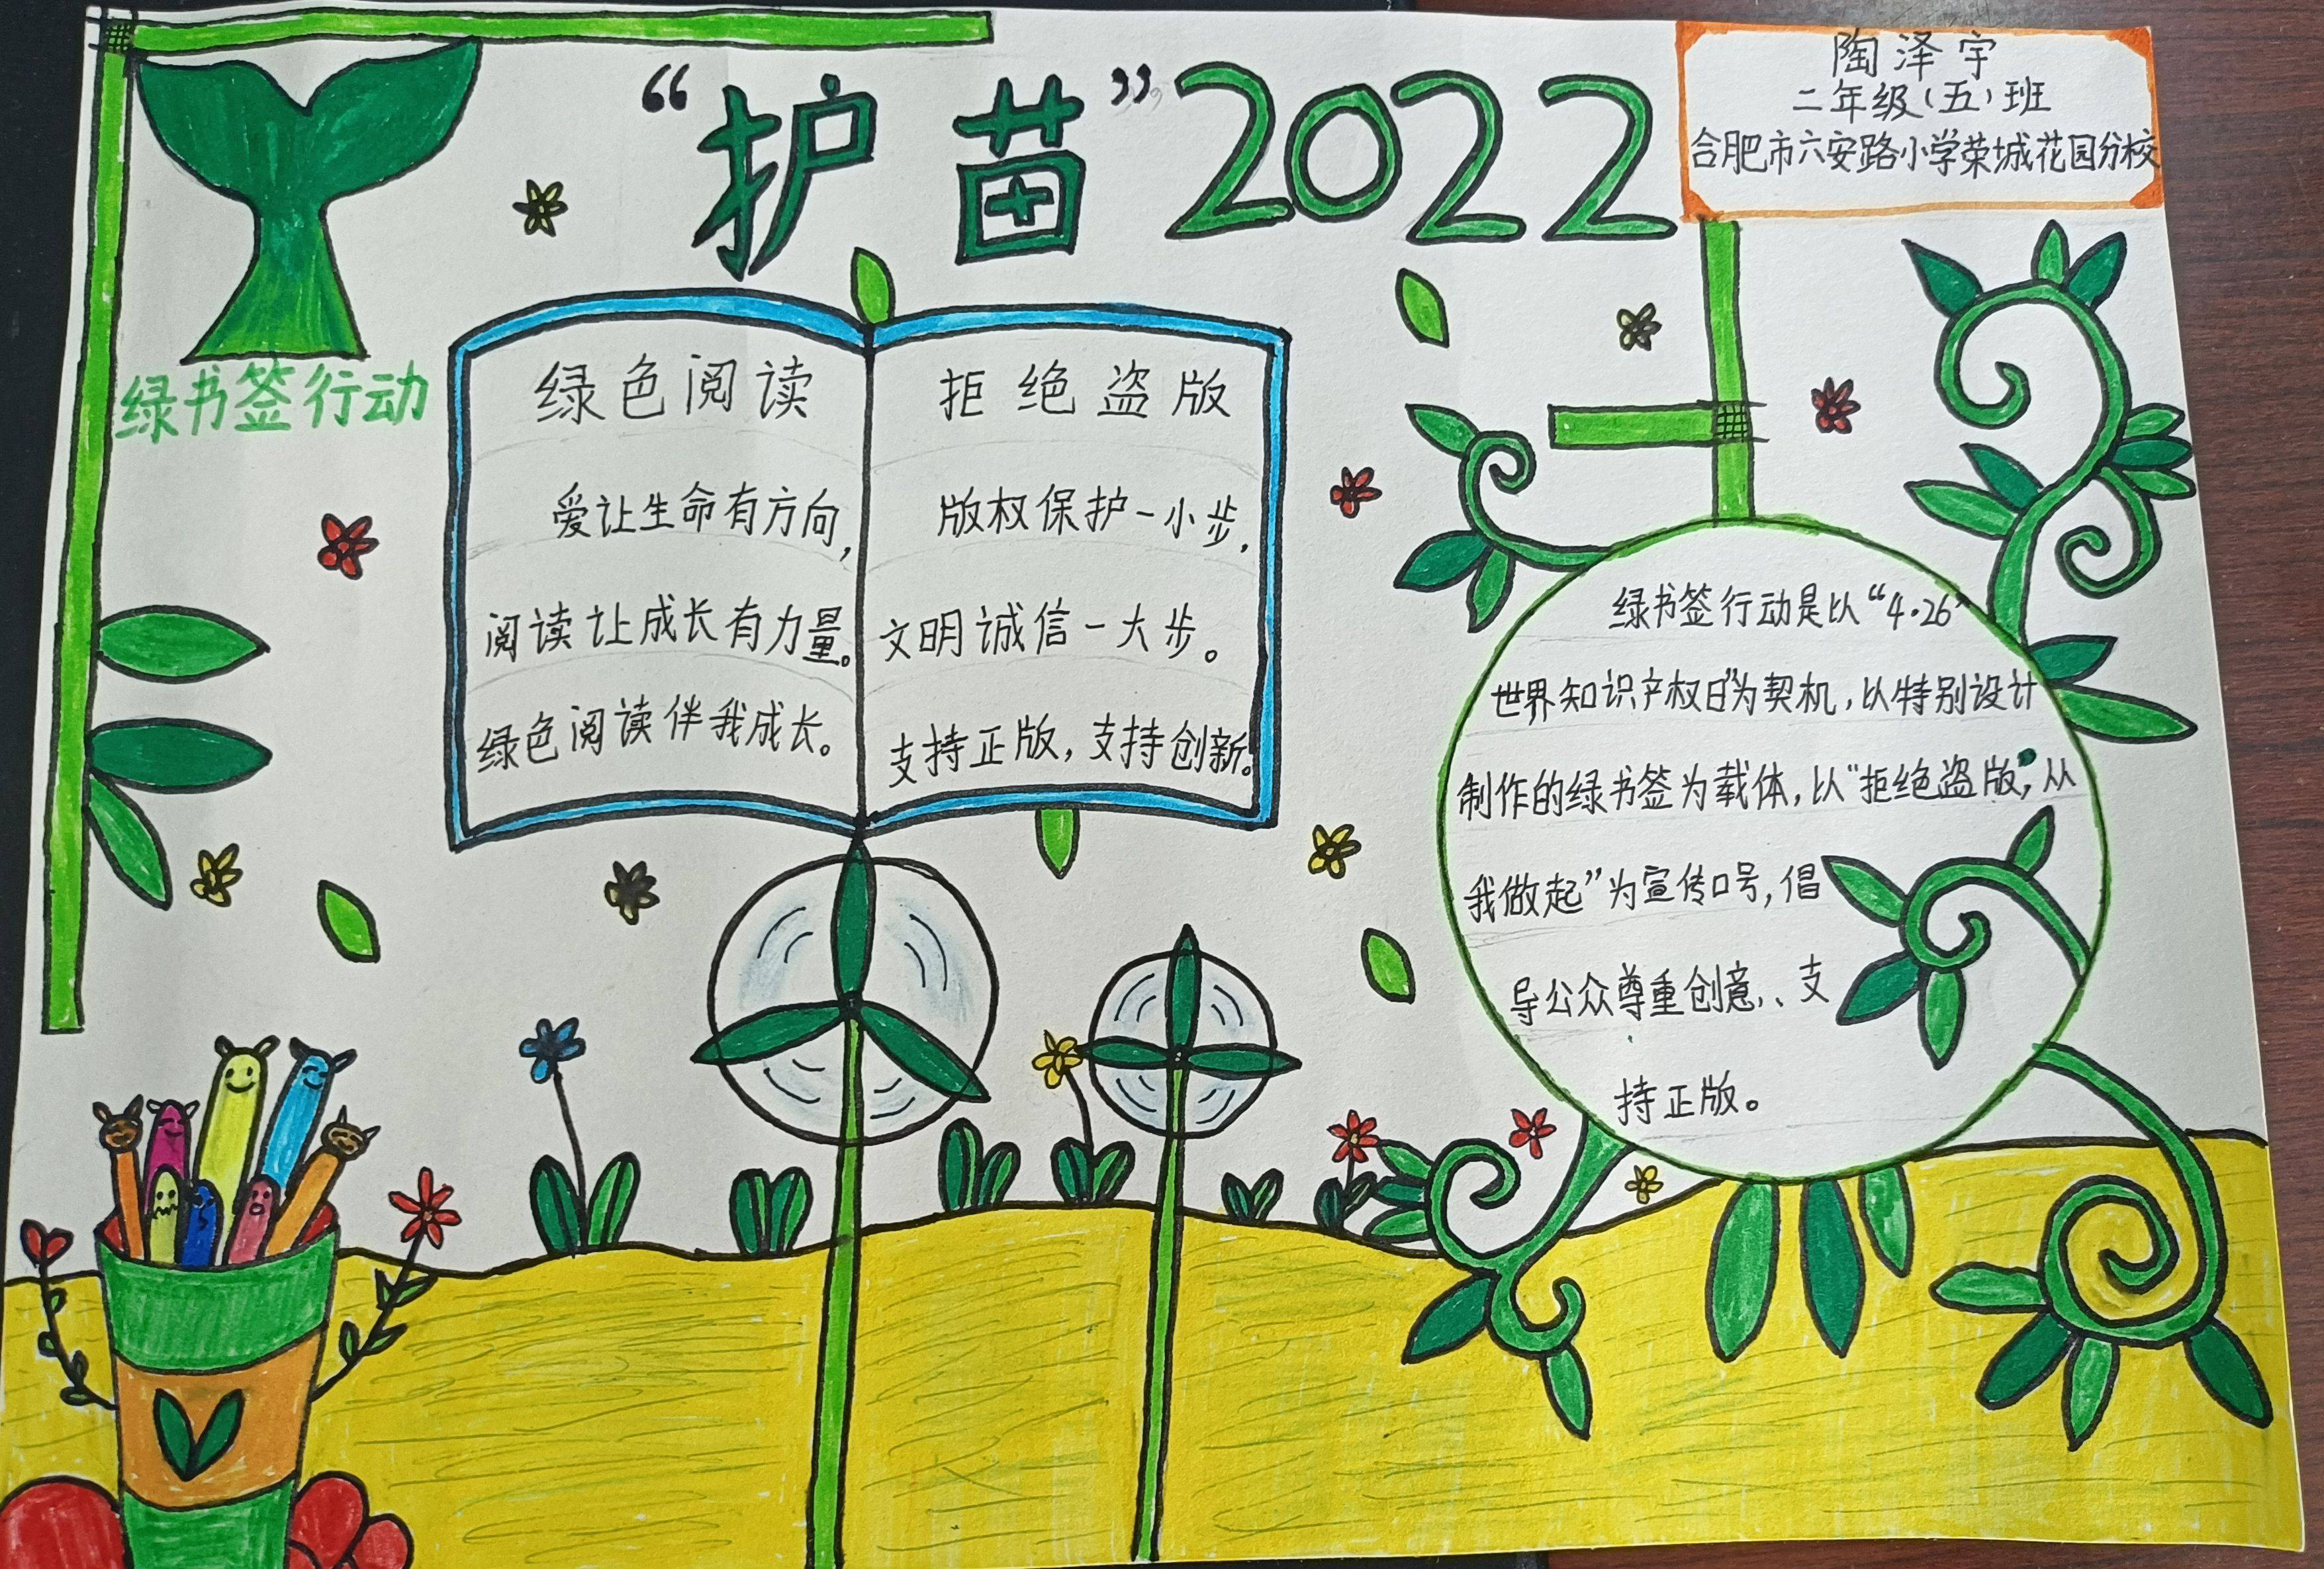 “护苗”2022
陶泽宇
二年级（五）班
合肥市六安路小学荣城花园分校
绿书签行动
绿色阅读
爱让生命有方向，
阅读让成长有力量。
绿色阅读伴我成长。
拒绝盗版
版权保护一小步，
文明诚信一大步。
支持正版，支持创新。
绿书签行动是以“4·26
世界知识产权日”为契机，以特别设计
制作的绿书签为载体，以“拒绝盗版，从
我做起”为宣传口号，倡
导公众尊重创意，、支
持正版。